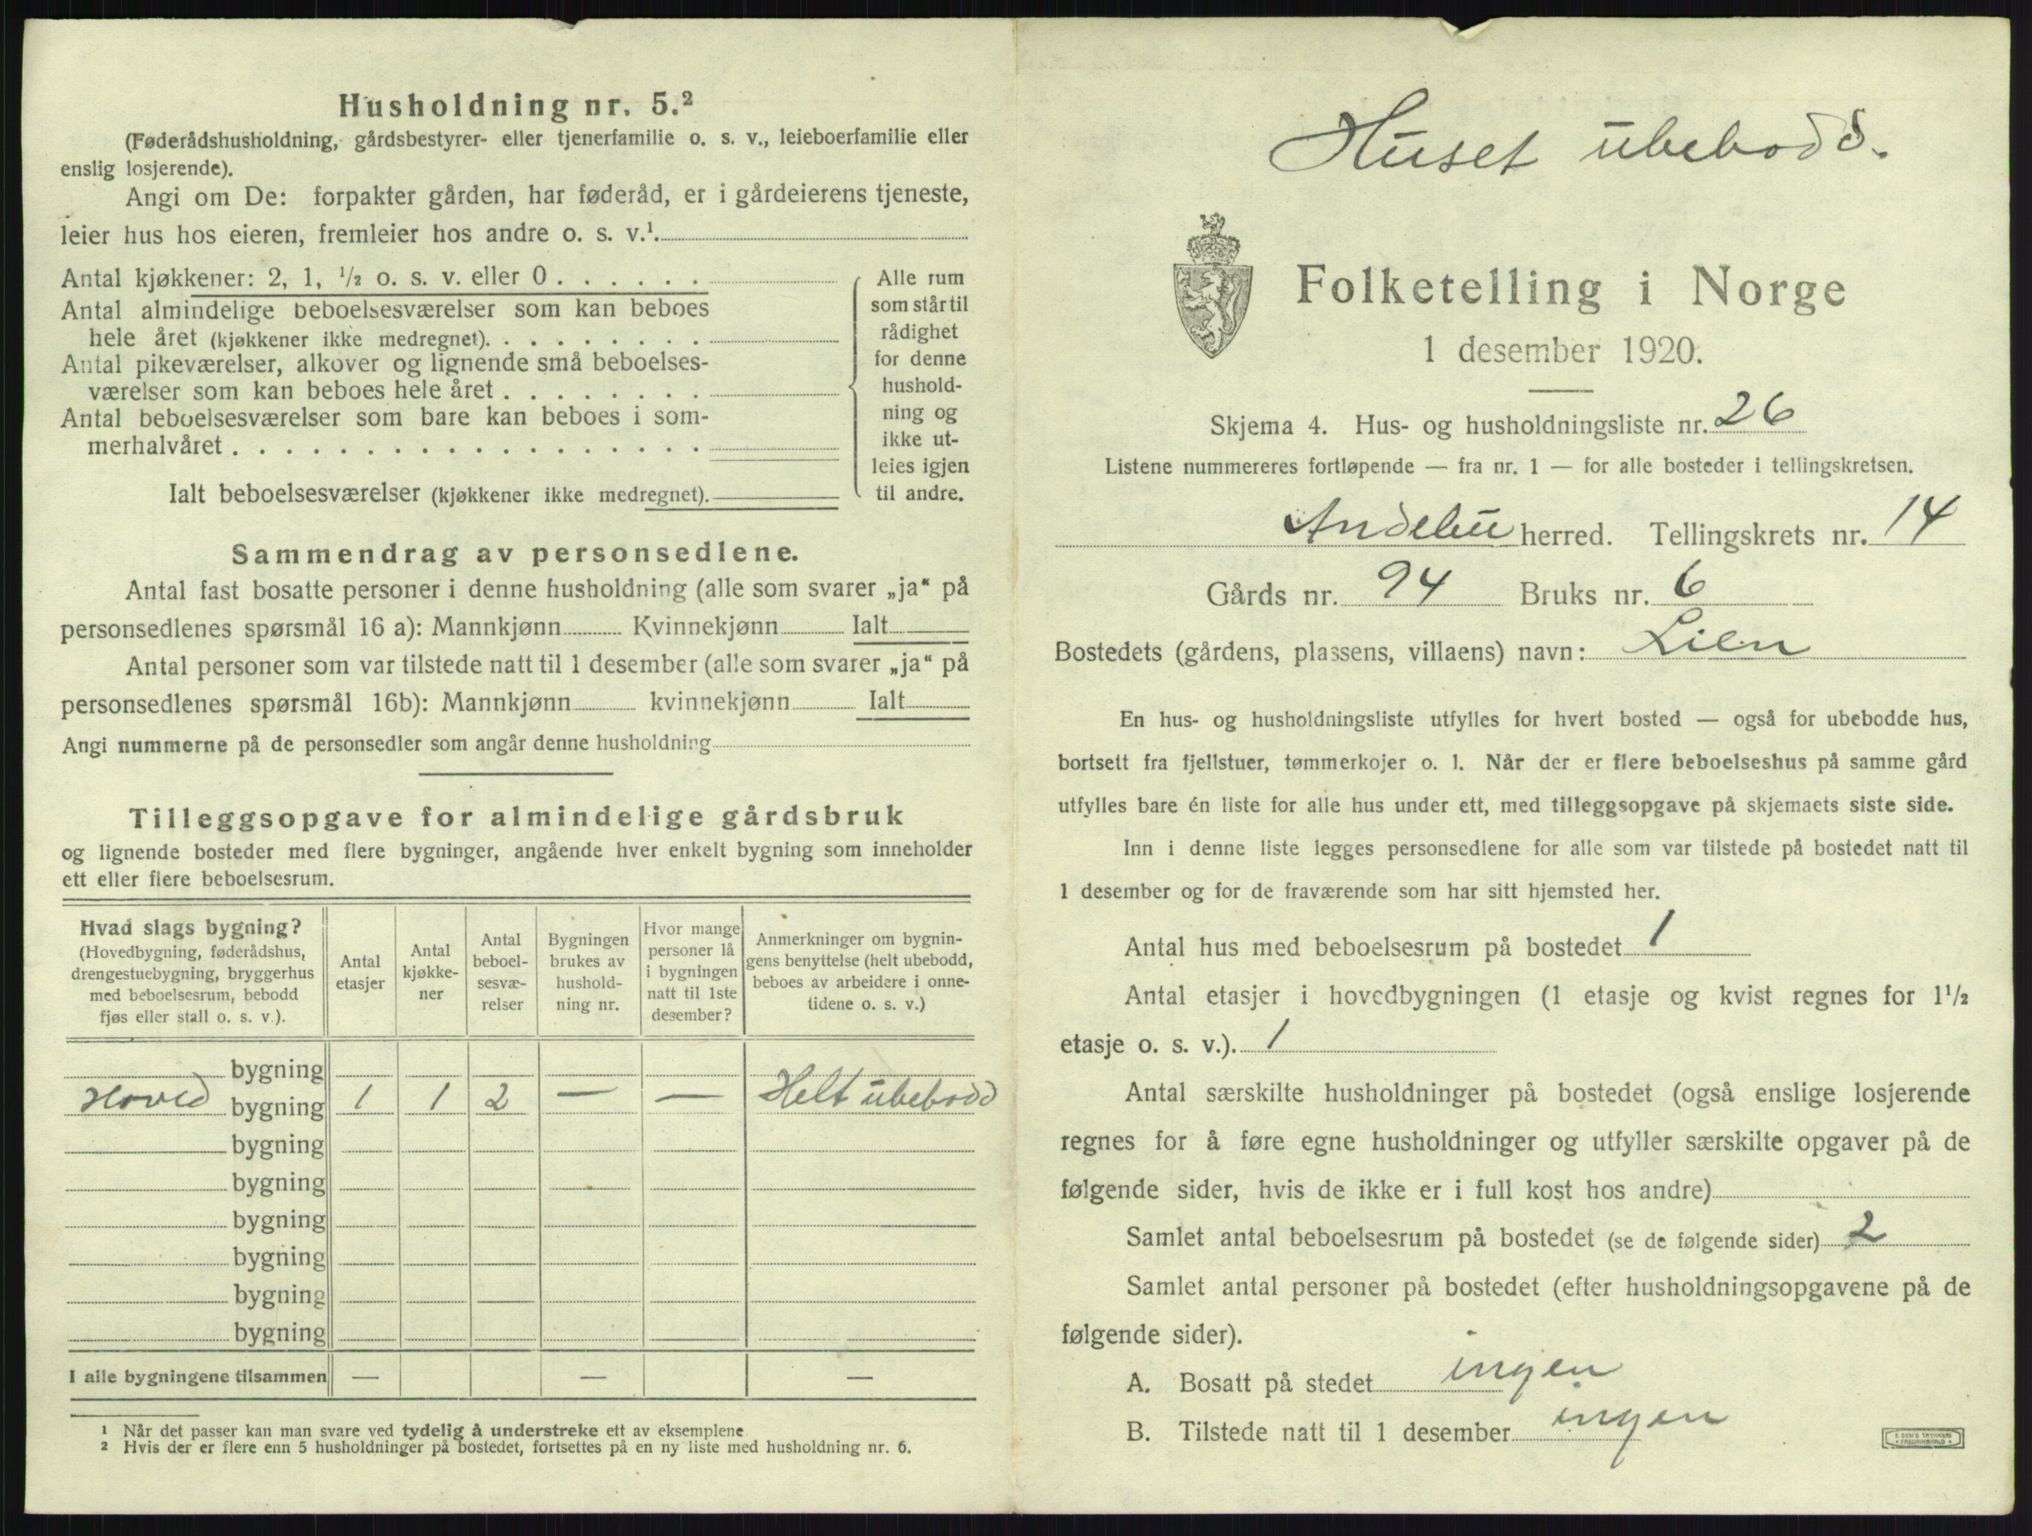 Husholdning nr. 5.²
(Føderådshusholdning, gårdsbestyrer- eller tjenerfamilie o. s. v., leieboerfamilie eller
enslig losjerende).
Angi om De: forpakter gården, har føderåd, er i gårdeierens tjeneste,
leier hus hos eieren, fremleier hos andre o. s. v.¹
Antal kjøkkener: 2, 1, ½ o. s. v. eller 0
Antal almindelige beboelsesværelser som kan beboes
hele året (kjøkkener ikke medregnet).
Antal pikeværelser, alkover og lignende små beboelses-
værelser som kan beboes hele året
Antal beboelsesværelser som bare kan beboes i som-
merhalvåret
Ialt beboelsesværelser (kjøkkener ikke medregnet).
Alle rum
som står til
rådighet
for denne
hushold-
ning og
ikke ut-
leies igjen
til andre.
Sammendrag av personsedlene.
Antal fast bosatte personer i denne husholdning (alle som svarer „ja“ på
personsedlenes spørsmål 16 a): Mannkjønn Kvinnekjønn Ialt
Antal personer som var tilstede natt til 1 desember (alle som svarer „ja“ på
personsedlenes spørsmål 16b): Mannkjønn kvinnekjønn Ialt
Angi nummerne på de personsedler som angår denne husholdning
Tilleggsopgave for almindelige gårdsbruk
og lignende bosteder med flere bygninger, angående hver enkelt bygning som inneholder
ett eller flere beboelsesrum.
Hvad slags bygning?
(Hovedbygning, føderådshus,
drengestuebygning, bryggerhus
med beboelsesrum, bebodd
fjøs eller stall o. s. v.).
Antal
etasjer
Antal
kjøkke-
ner
Antal
beboel-
sesvæ-
relser
Bygningen
brukes av
hushold-
ning nr.
Hvor mange
personer lå
i bygningen
natt til 1ste
desember?
Anmerkninger om bygnin-
gens benyttelse (helt ubebodd,
beboes av arbeidere i onne-
tidene o. s. v.)
bygning
Hoved bygning 1 1 2 — — Helt ubebodd
bygning
bygning
bygning
bygning
bygning
bygning
I alle bygningene tilsammen — — —
¹ Når det passer kan man svare ved tydelig å understreke ett av eksemplene
² Hvis der er flere enn 5 husholdninger på bostedet, fortsettes på en ny liste med husholdning nr. 6.
Huset ubebodd.
Folketelling i Norge
1 desember 1920.
Skjema 4. Hus- og husholdningsliste nr. 26
Listene nummereres fortløpende — fra nr. 1 — for alle bosteder i tellingskretsen.
Andebu herred. Tellingskrets nr. 14
Gårds nr. 94 Bruks nr. 6
Bostedets (gårdens, plassens, villaens) navn: Lien
En hus- og husholdningsliste utfylles for hvert bosted — også for ubebodde hus,
bortsett fra fjellstuer, tømmerkojer o. l. Når der er flere beboelseshus på samme gård
utfylles bare én liste for alle hus under ett, med tilleggsopgave på skjemaets siste side.
Inn i denne liste legges personsedlene for alle som var tilstede på bostedet natt til
1 desember og for de fraværende som har sitt hjemsted her.
Antal hus med beboelsesrum på bostedet 1
Antal etasjer i hovedbygningen (1 etasje og kvist regnes for 1½
etasje o. s. v.). 1
Antal særskilte husholdninger på bostedet (også enslige losjerende
regnes for å føre egne husholdninger og utfyller særskilte opgaver på de
følgende sider, hvis de ikke er i full kost hos andre)
Samlet antal beboelsesrum på bostedet (se de følgende sider) 2
Samlet antal personer på bostedet (efter husholdningsopgavene på de
følgende sider).
A. Bosatt på stedet ingen
B. Tilstede natt til 1 desember ingen